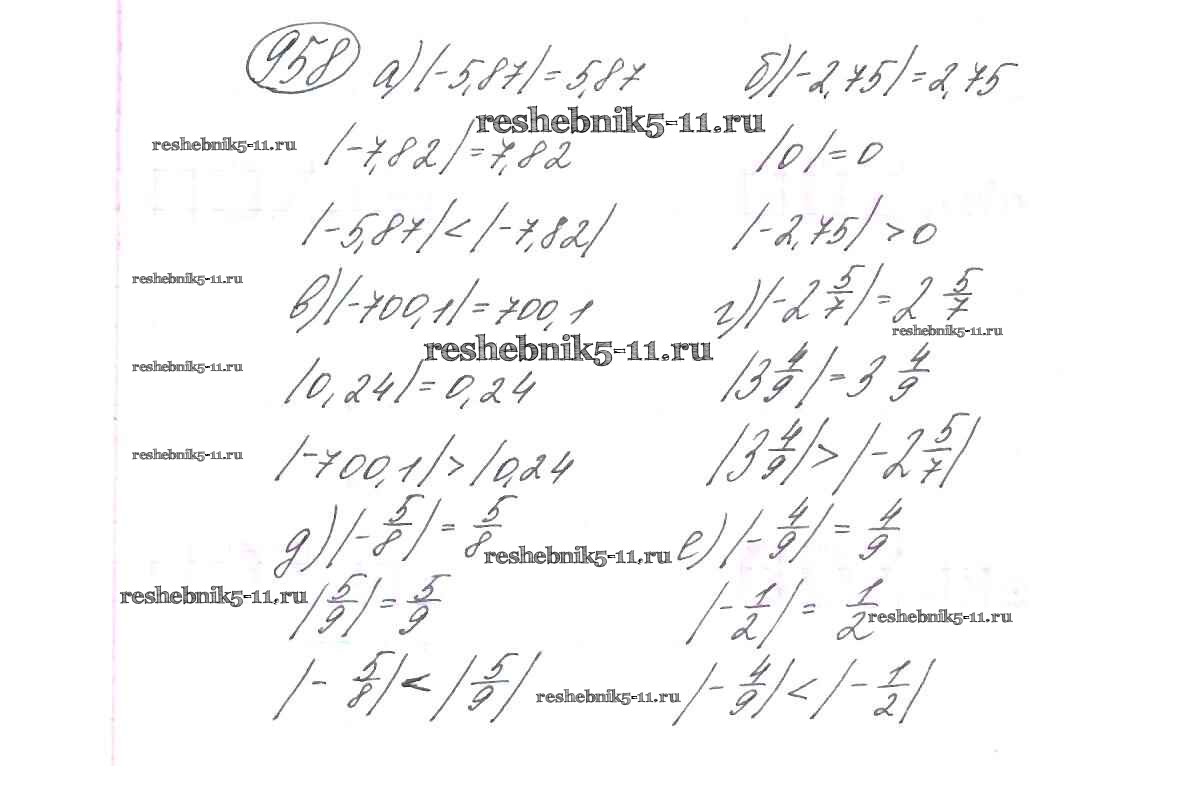 958 а) |-5,87| = 5,87 б) |-2,75| = 2,75
reshebnik5-11.ru
reshebnik5-11.ru |-7,82| = 7,82 |0| = 0
|-5,87| < |-7,82| |-2,75| > 0
reshebnik5-11.ru в) |-700,1| = 700,1 г) |-2 5/7| = 2 5/7
reshebnik5-11.ru
reshebnik5-11.ru
reshebnik5-11.ru |0,24| = 0,24 |3 4/9| = 3 4/9
reshebnik5-11.ru |-700,1| > |0,24 |3 4/9| > |-2 5/7|
д) |-5/8| = 5/8 reshebnik5-11.ru е) |-4/9| = 4/9
reshebnik5-11.ru |5/9| = 5/9 |-1/2| = 1/2 reshebnik5-11.ru
|-5/8| < |5/9| reshebnik5-11.ru |-4/9| < |-1/2|